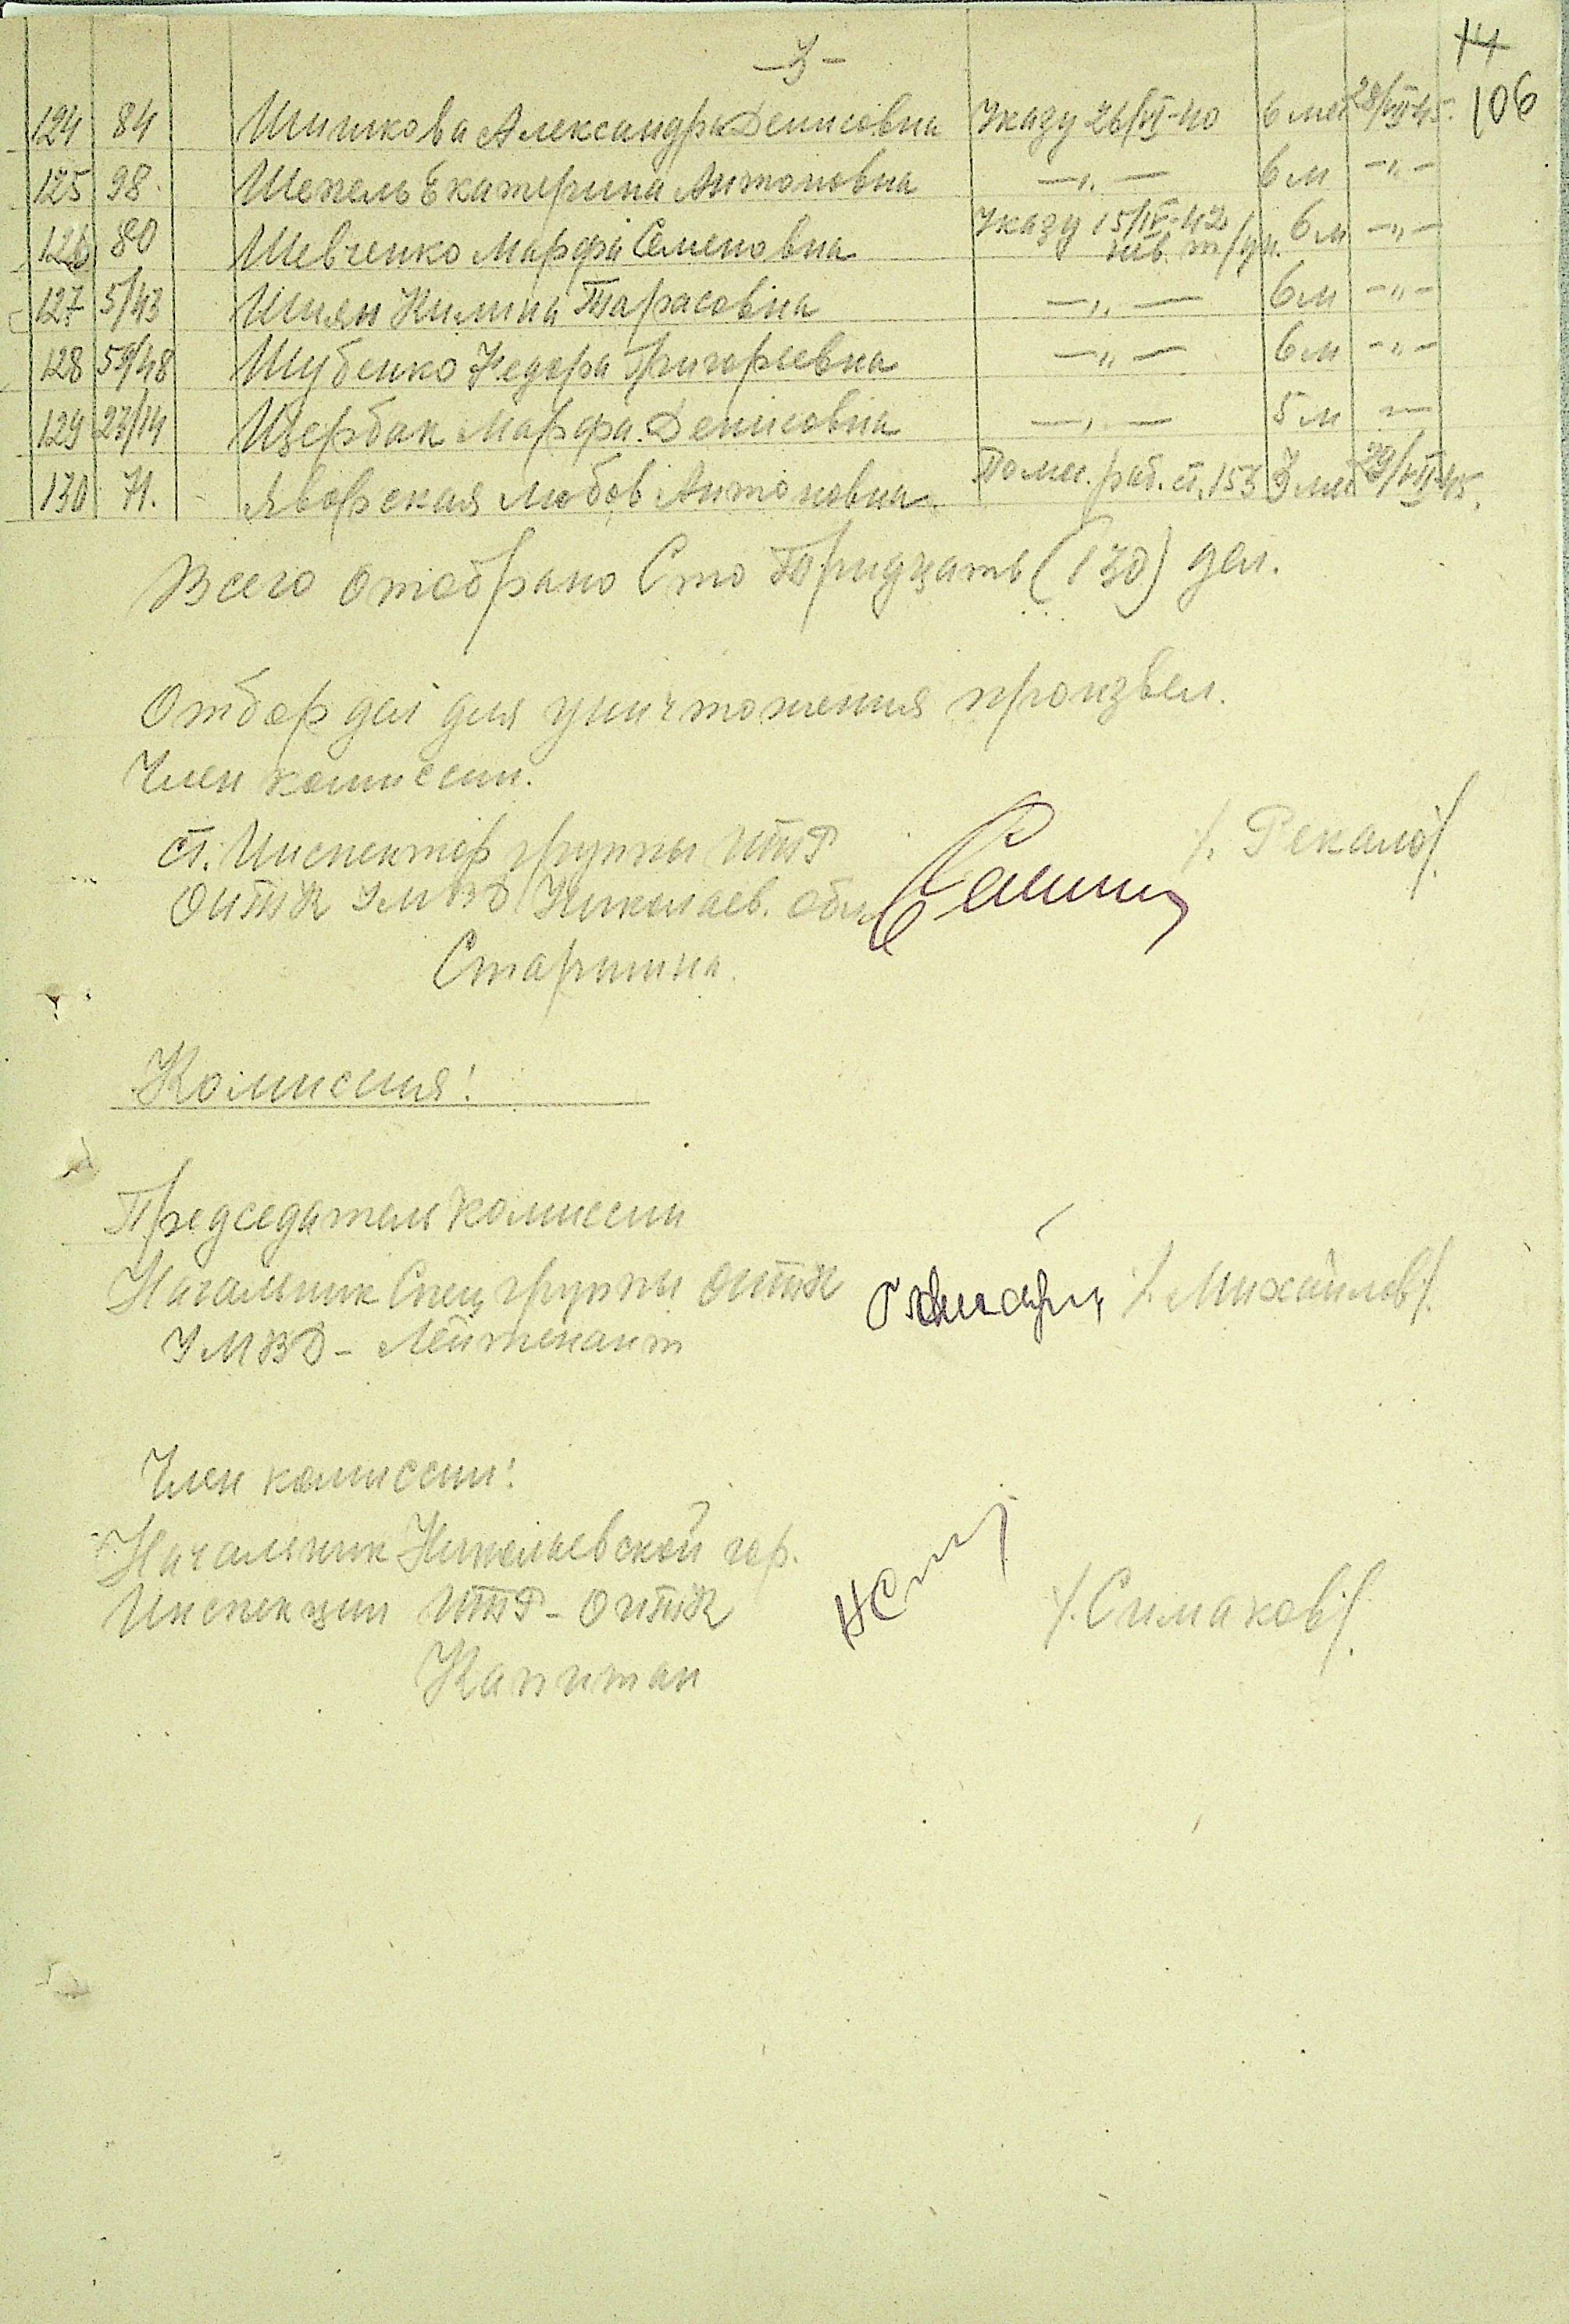 -3-
14
106
124 84 Шишкова Александра Денисовна Указу 26/VI-40 6 мес 28/VII-45.
125 98. Шепель Екатерина Антоновна -„- 6 м -„-
126 80 Шевченко Марфа Семеновна Указу 15/IV-42 6 м -„-
127 5/43 Шиян Килина Тарасовна -„- 6 м -„-
128 59/48 Шубенко Федора Григорьевна -„- 6 м -„-
129 27/14 Щербак Марфа Денисовна -„- 5 м -
130 71. Яворская Любов Антоновна 3 мес 29/VII-45.
Всего отобрано Сто Тридцать (130) дел.
Отбор дел для уничтожения произвел.
Член комиссии.
Ст. Инспектор группы ИТР
ОИТК УМВД Николаев. обл
/. Рекало /.
Старшина.
Комиссия:
Председатель комиссии
Начальник Спец группы ОИТК /. Михайлов /.
УМВД - Лейтенант
Член комиссии:
Начальник Николаевской гор.
Инспекции ИТР - ОИТК /. Симаков /.
Капитан